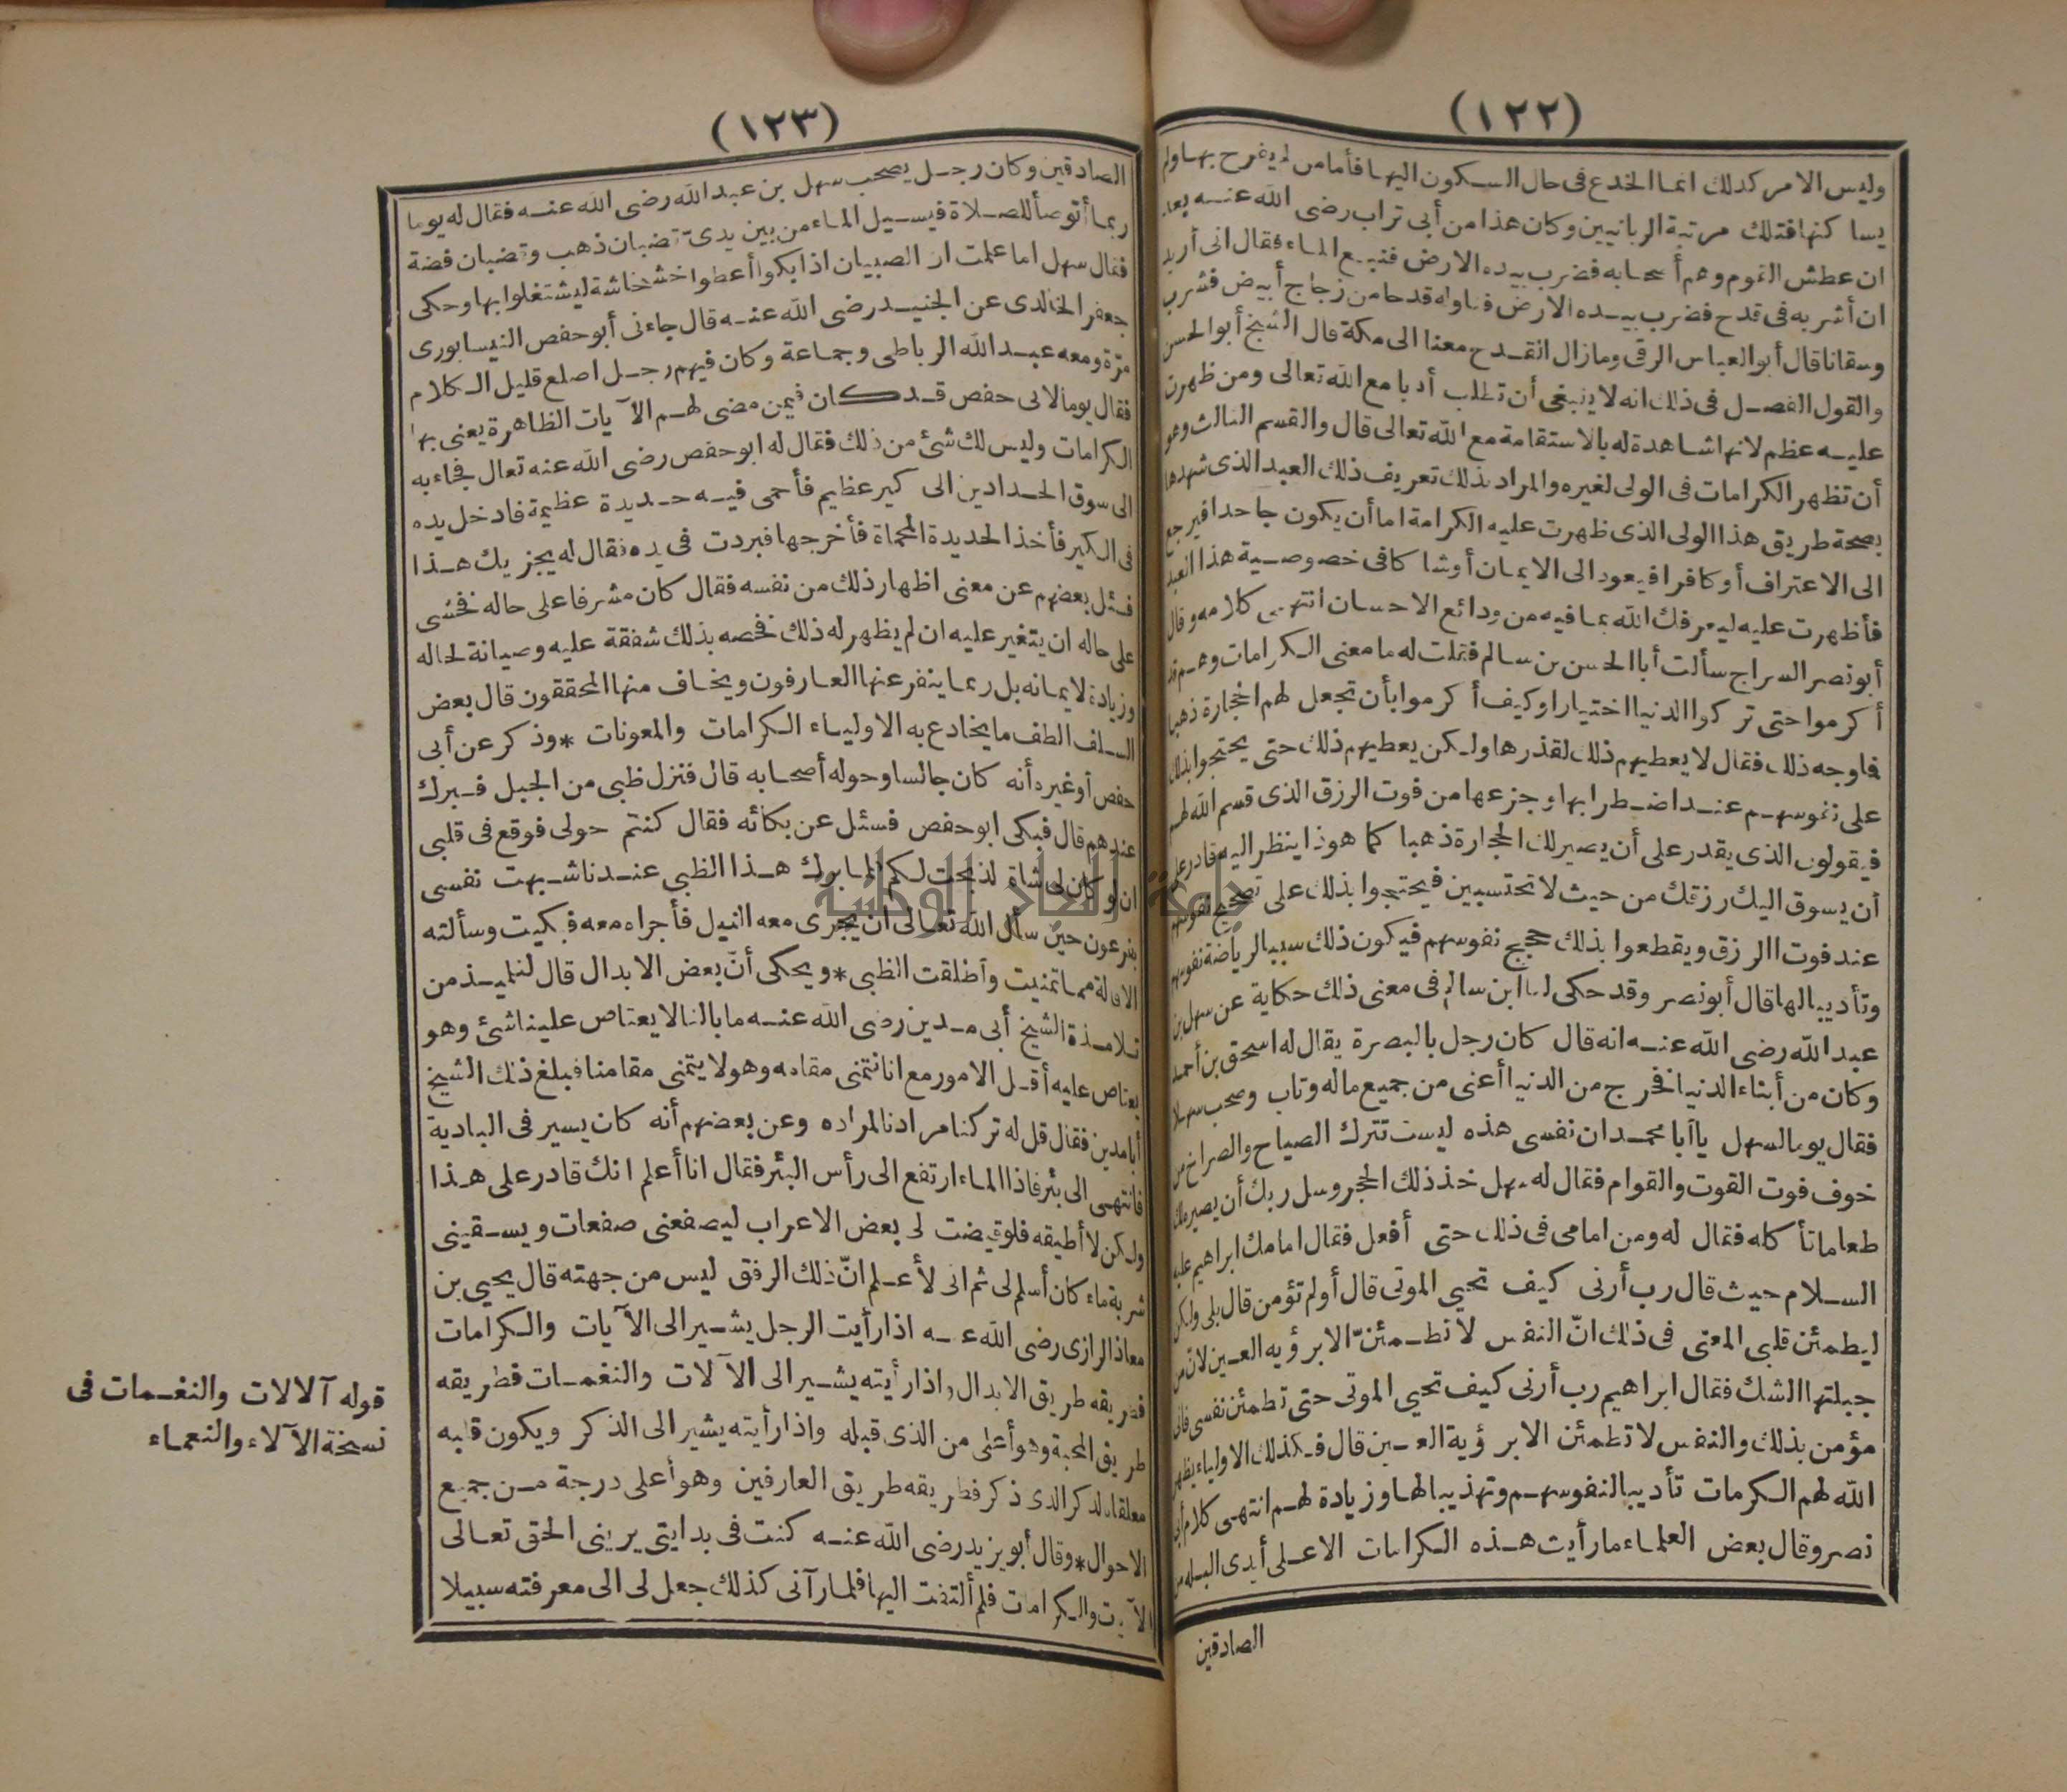 (١٢٢)
وليس الامر كذلك انما الخدع فى حال السكون اليها فأما من لم يفرح بها ولم
يسا كنها فتلك مرتبة الربانيين وكان هذا من أبى تراب رضى الله عنه
ان عطش القوم وهم أصحابه فضرب بيده الارض فنبع الماء فقال انى أريد
ان أشر به فى قدح فضرب بيده الارض فناوله قدحا من زجاج أبيض فشرب
وسقانا قال أبو العباس الرقى وما زال القدح معنا الى مكة قال الشيخ أبو الحسن
والقول الفصل فى ذلك انه لا ينبغى أن تطلب أدبا مع الله تعالى ومن ظهرت
عليه عظم لانها شاهدة له بالاستقامة مع الله تعالى قال والقسم الثالث وهو
أن تظهر الكرامات فى الولى لغيره والمراد بذلك تعريف ذلك العبد الذى شهدها
بصحة طريق هذا الولى الذى ظهرت عليه الكرامة اما أن يكون جاحدا فيرجع
الى الاعتراف أو كافرا فيعود الى الايمان أو شا كا فى خصوصية هذا العبد
فأظهرت عليه ليعرفك الله بما فيه من ودائع الاحسان انتهى كلامه وقال
أبو نصر السراج سألت أبا الحسن بن سالم فقلت له ما معنى الكرامات وهم قد
أ كرموا حتى تر كوا الدنيا اختيارا وكيف أ كرموا بأن تجعل لهم الحجارة ذهبا
فاوجه ذلك فقال لا يعطيهم ذلك لقدرها ولكن يعطيهم ذلك حتى يحتجوا بذلك
على نفوسهم عند اضطرابها وجزعها من فوت الرزق الذى قسم الله لهم
فيقولون الذى يقدر على أن يصير لك الحجارة ذهبا كما هو ذا ينظر اليه قادر على
أن يسوق اليك رزقك من حيث لا تحتسبين فيحتجوا بذلك على تصحيح نفوسهم
عند فوت الرزق ويقطعوا بذلك حجج نفوسهم فيكون ذلك سببا لرياضة نفوسهم
وتأديبا لها قال أبو نصر وقد حكى لنا ابن سالم فى معنى ذلك حكاية عن سهل بن
عبد الله رضى الله عنه انه قال كان رجل بالبصرة يقال له اسحق بن أحمد
وكان من أبناء الدنيا فخرج من الدنيا أعنى من جميع ماله وتاب وصحب سهلا
فقال يوما لسهل يا أبا محمد ان نفسى هذه ليست تترك الصياح والصراخ من
خوف فوت القوت والقوام فقال له سهل خذ ذلك الحجر وسل ربك أن يصيره لك
طعاما تأ كله فقال له ومن امامى فى ذلك حتى أفعل فقال امامك ابراهيم عليه
السلام حيث قال رب أرنى كيف تحيى الموتى قال أولم تؤمن قال بلى ولكن
ليطمئن قلبى المعنى فى ذلك انّ النفس لا تطمئنّ الا برؤيه العين لان من
جبلتها الشك فقال ابراهيم رب أرنى كيف تحيى الموتى حتى تطمئن نفسى فانى
مؤمن بذلك والنفس لا تطمئن الا برؤية العين قال فكذلك الاولياء يظهر
الله لهم الكرمات تأديبا لنفوسهم وتهذيبا لها وزيادة لهم انتهى كلام أبى
نصر وقال بعض العلماء ما رأيت هذه الكرامات الا على أيدى البله من
الصادقين
(١٢٣)
الصادقين وكان رجل يصحب سهل بن عبد الله رضى الله عنه فقال له يوما
ربما أتوضأ للصلاة فيسيل الماء من بين يدىّ قضبان ذهب وقضبان فضة
فقال سهل اما علمت ان الصبيان اذا بكوا أعطوا خشخاشة ليشتغلوا بها وحكى
جعفر الخالدى عن الجنيد رضى الله عنه قال جاءنى أبو حفص النيسابورى
مرّة ومعه عبد الله الرباطى وجماعة وكان فيهم رجل اصلع قليل الكلام
فقال يوما لابى حفص قد كان فيمن مضى لهم الآيات الظاهرة يعنى بها
الكرامات وليس لك شئ من ذلك فقال له ابو حفص رضى الله عنه تعال فجاء به
الى سوق الحدادين الى كير عظيم فأحمى فيه حديدة عظيمة فادخل يده
فى الكير فأخذ الحديدة المحماة فأخرجها فبردت فى يده فقال له يجزيك هذا
فسئل بعضهم عن معنى اظهار ذلك من نفسه فقال كان مشرفا على حاله فخشى
على حاله ان يتغير عليه ان لم يظهر له ذلك فخصه بذلك شفقة عليه وصيانة لحاله
وزيادة لايمانه بل ربما ينفر عنها العارفون ويخاف منها المحققون قال بعض
السلف الطف ما يخادع به الاولياء الكرامات والمعونات *وذ كر عن أبى
حفص أو غيره أنه كان جالسا وحوله أصحابه قال فنزل ظبى من الجبل فبرك
عندهم قال فبكى ابو حفص فسئل عن بكائه فقال كنتم حولى فوقع فى قلبى
ان لو كان لى شاة لذبحت لكم فلما برك هذا الظبى عندنا شبهت نفسى
بفرعون حين سأل الله تعالى ان يجرى معه النيل فأجراه معه فبكيت وسألته
الاقالة مما تمنيت وأطلقت الظبى *ويحكى أنّ بعض الابدال قال لتلميذ من
تلامذة الشيخ أبى مدين رضى الله عنه ما بالنا لا يعتاص علينا شئ وهو
يعتاص عليه أقل الامور مع انا نتمنى مقامه وهو لا يتمنى مقامنا فبلغ ذلك الشيخ
أبا مدين فقال قل له تركنا مرادنا لمراده وعن بعضهم أنه كان يسير فى البادية
فانتهى الى بئر فاذا الماء ارتفع الى رأس البئر فقال انا أعلم انك قادر على هذا
ولكن لا أطيقه فلو قيضت لى بعض الاعراب ليصفعنى صفعات ويسقينى
شربة ماء كان أسلم لى ثم انى لأعلم انّ ذلك الرفق ليس من جهته قال يحيى بن
معاذ الرازى رضى الله عنه اذا رأيت الرجل يشير الى الآيات والكرامات
فطريقه طريق الابدال واذا رأيته يشير الى الآلات والنغمات فطريقه
طريق المحبة وهو أعلى من الذى قبله واذا رأيته يشير الى الذكر ويكون قلبه
معلقا بالذكر الذى ذكر فطريقه طريق العارفين وهو أعلى درجة من جميع
الاحوال *وقال أبو يزيد رضى الله عنه كنت فى بدايتى يرينى الحق تعالى
الآيات والكرامات فلم ألتفت اليها فلما رآنى كذلك جعل لى الى معرفته سبيلا
قوله آلالات والنغمات فى
نسخة الآلاء والنعماء
جامعة النجاح الوطنية